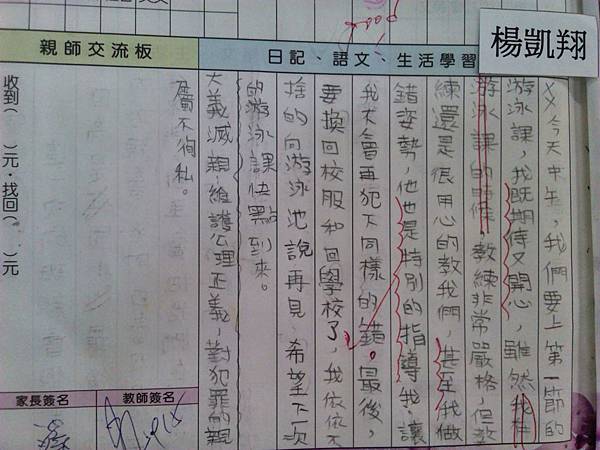 楊凱翔
日記、語文、生活學習
親師交流板
××今天中午，我們要上第一節的
游泳課，我既期待又開心，雖然我在
游泳課的時候，教練非常嚴格，但教
練還是很用心的教我們，甚至我做
錯姿勢，他也是特別的指導我，讓
我不會再犯下同樣的錯。最後，
要換回校服和回學校了，我依依不
捨的向游泳池說再見，希望下一次
的游泳課快點到來。
大義滅親：維護公理正義，對犯罪的親
屬不徇私。
收到（　）元，找回（　）元
教師簽名
家長簽名